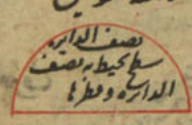 نصف الدايره
سطح يحيط به نصف
الدايره وقطرها